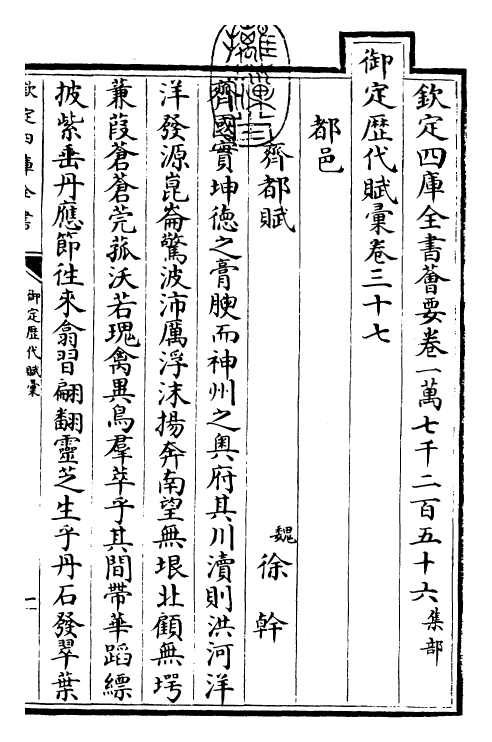 欽定四庫全書薈要卷一萬七千二百五十六集部
御定歷代賦彙卷三十七
都邑
齊都賦
魏徐幹
齊國實坤德之膏腴而神州之奥府其川瀆則洪河洋
洋發源崑崙驚波沛厲浮沫揚奔南望無垠北顧無堮
蒹葭蒼蒼莞菰沃若瑰禽異鳥羣萃乎其間帶華蹈縹
披紫垂丹應節往來翕習翩翻靈芝生乎丹石發翠葉
欽定四庫全書
御定歷代賦彙
一